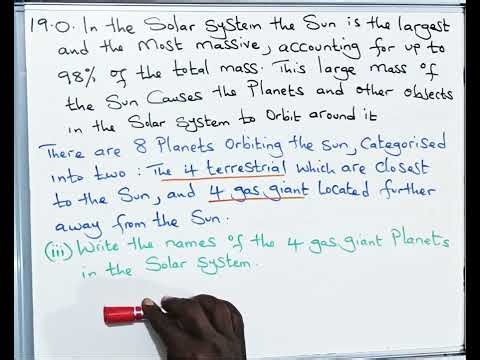 19.0. In the Solar System the Sun is the largest
and the Most Massive, accounting for up to
98% of the total mass. This large mass of
the Sun Causes the Planets and other objects
in the Solar system to Orbit around it
There are 8 Planets Orbiting the Sun, Categorised
into two: The 4 terrestrial which are closest
to the Sun, and 4 gas giant Located further
away from the Sun.
(iii) Write the names of the 4 gas giant Planets
in the Solar System.